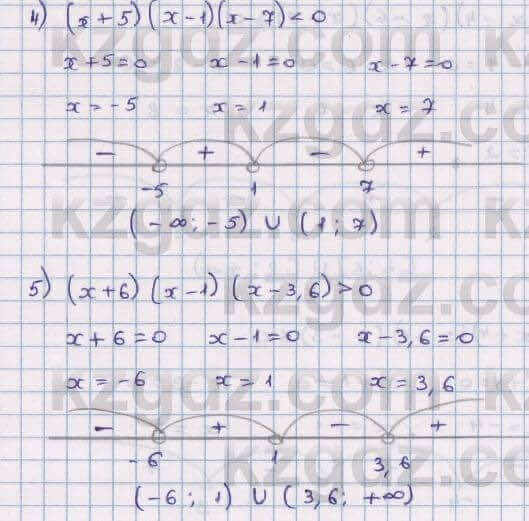 4) (x + 5) (x - 1)(x - 7) < 0
x + 5 = 0 x - 1 = 0 x - 7 = 0
x = - 5 x = 1 x = 7
- + - +
-5 1 7
(- ∞; - 5) ∪ (1; 7)
5) (x + 6) (x - 1) (x - 3,6) > 0
x + 6 = 0 x - 1 = 0 x - 3,6 = 0
x = - 6 x = 1 x = 3,6
- + - +
- 6 1 3,6
(- 6; 1) ∪ (3,6; +∞)
kzgdz.com